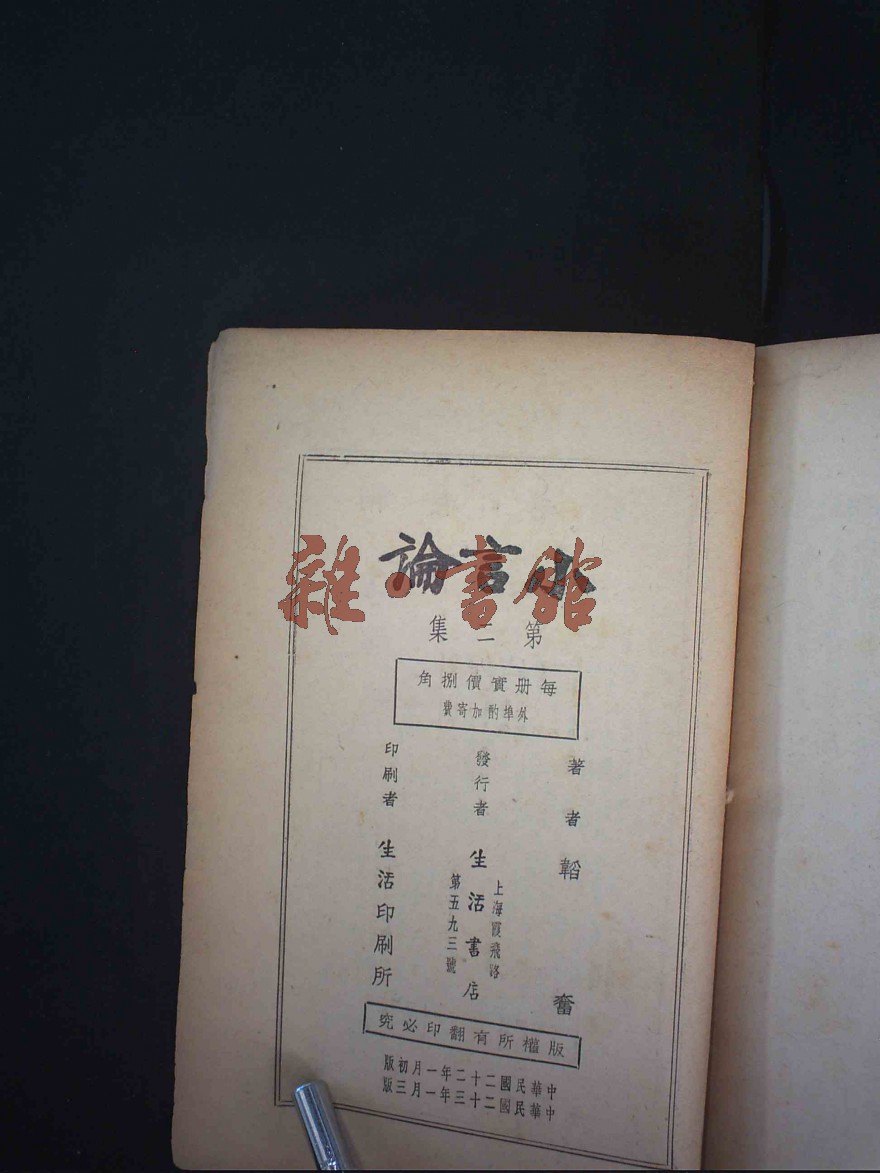 小言論
雜書館
第二集
每册實價捌角
外埠酌加寄費
著者 韜奮
發行者 生活書店
上海霞飛路
第五九三號
印刷者 生活印刷所
版權所有翻印必究
中華民國二十二年一月初版
中華民國二十三年一月三版